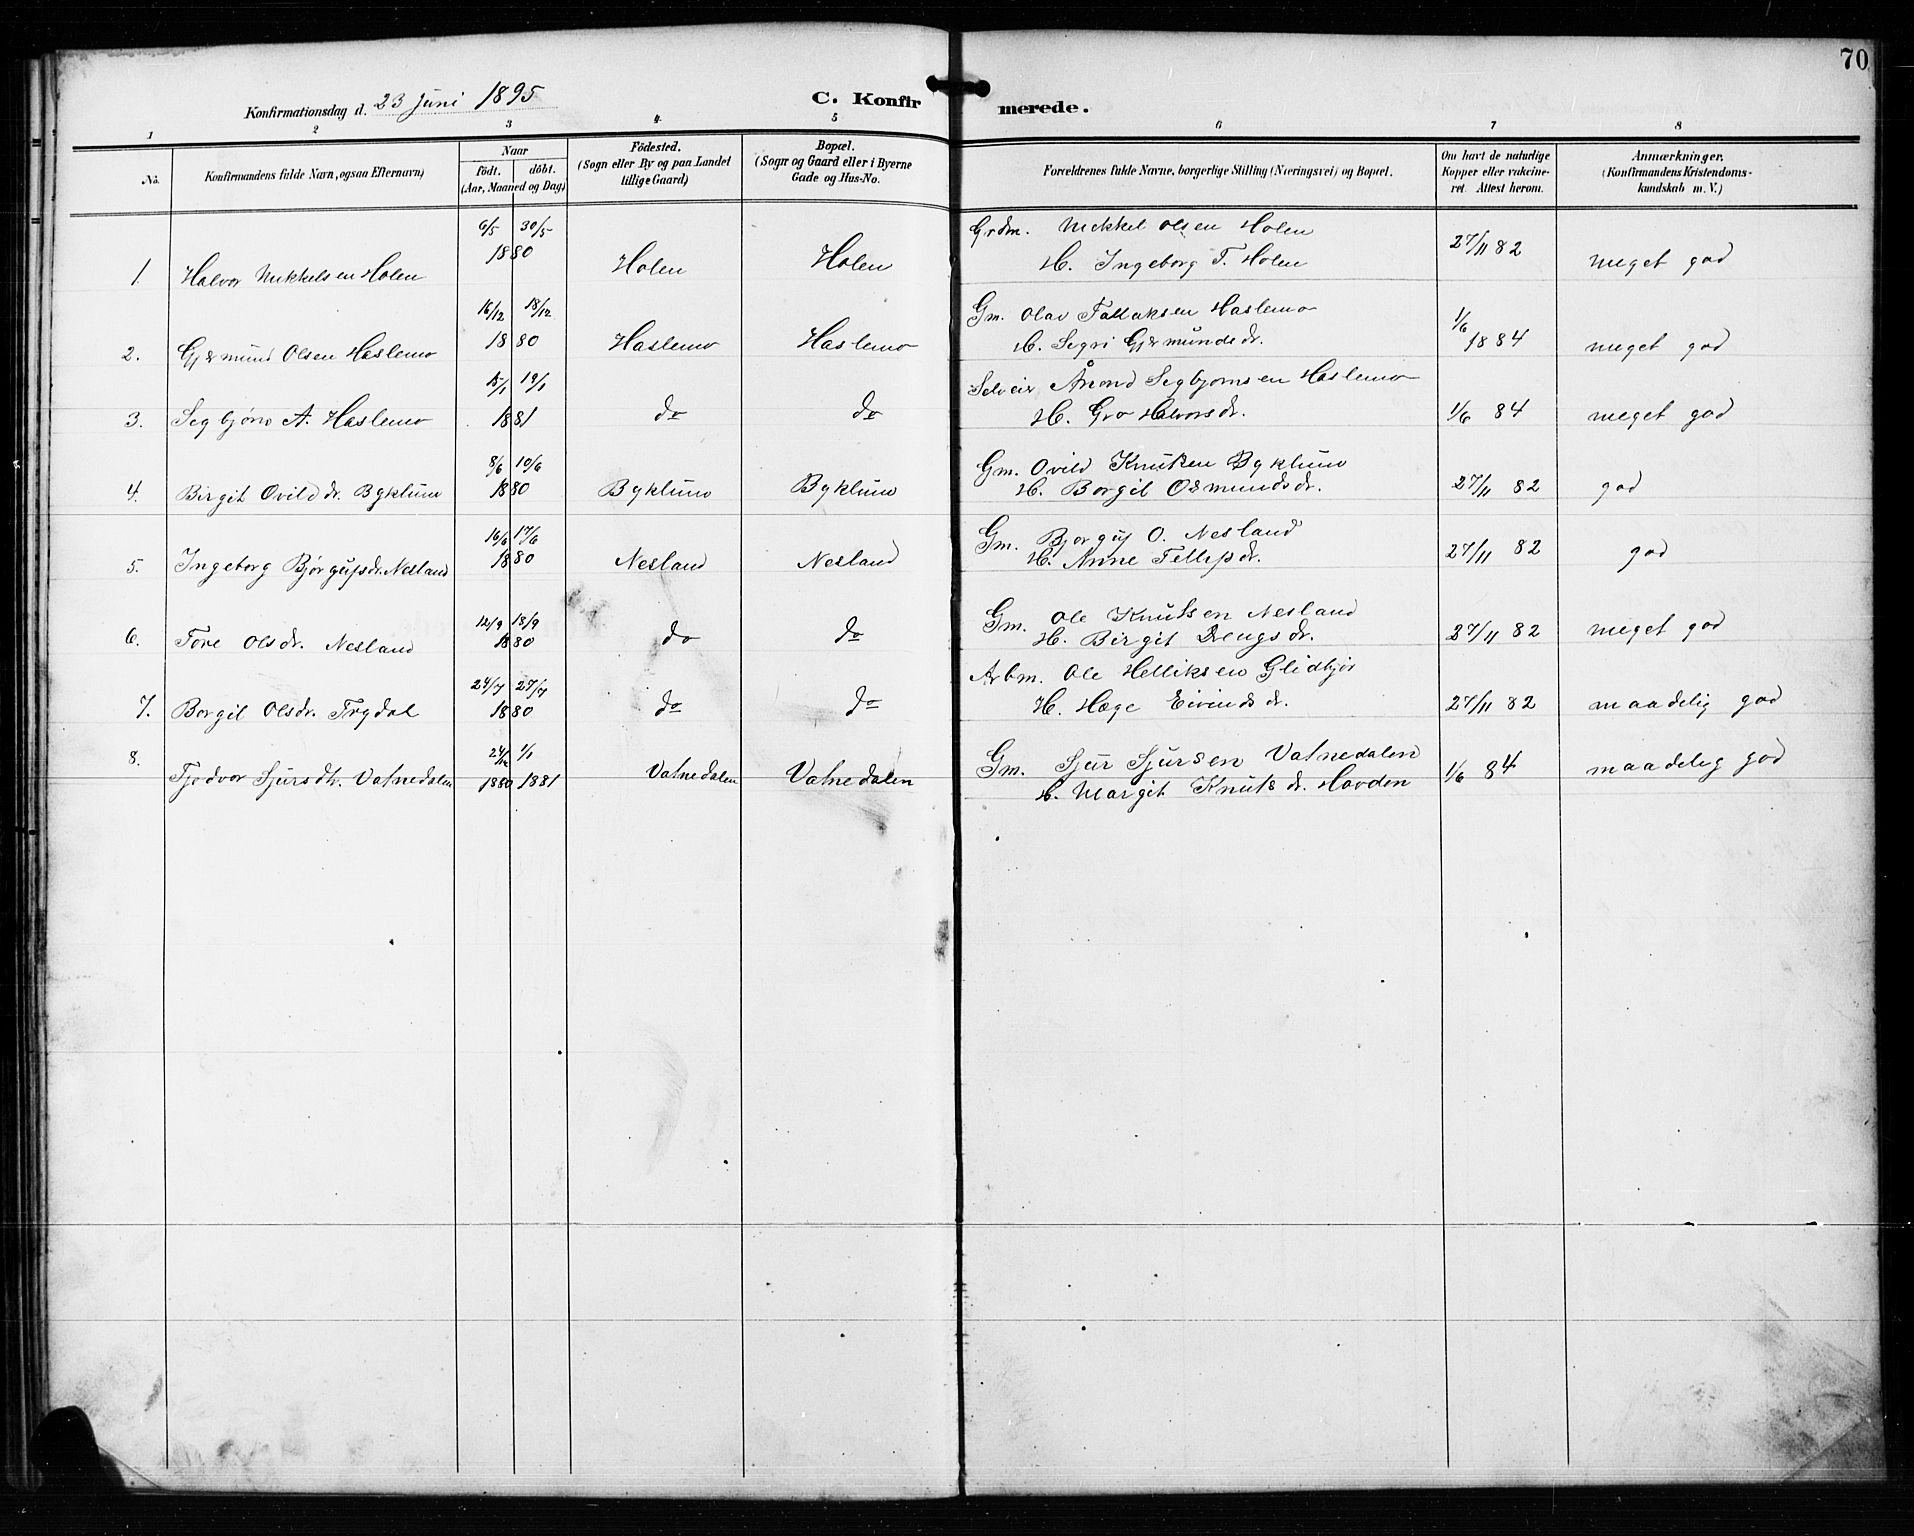 70
Konfirmationsdag d. 23 Juni 1895
C. Konfirmerede.
1 2 3 4 5 6 7 8
No.
Konfirmandens fulde Navn, ogsaa Efternavn)
Naar
födt. döbt.
(Aar, Maaned og Dag)
Födested.
(Sogn eller By og paa Landet
tillige Gaard)
Bopæl.
(Sogn og Gaard eller i Byerne
Gade og Hus-No.
Forældrenes fulde Navne, borgerlige Stilling (Næringsvei) og Bopæl.
Om havt de naturlige
Kopper eller vakcine-
ret. Attest herom.
Anmærkninger.
(Konfirmandens Kristendoms-
kundskab m. V.)
6/5 30/5 Grdm. Mikkel Olsen Holen
1. Halvor Mikkelsen Holen 1880 Holen Holen H. Ingeborg T. Holen 27/11 82 meget god
16/12 18/12 Gm. Olav Tallaksen Haslemo 1/6
2. Gjermund Olsen Haslemo 1880 Haslemo Haslemo H. Segri Gjermundsdr. 1884 meget god
15/1 19/1 Selveier Ånond Segbjornsen Haslemo
3. Segbjørn A. Haslemo 1881 do do H. Gro Halvorsdr. 1/6 84 meget god
8/6 10/6 Gm. Ovild Knutsen Byklum
4. Birgit Ovildsdr. Byklum 1880 Byklum Byklum H. Borgil Osmundsdr. 27/11 82 god
16/6 17/6 Gm. Bjorgup O. Nesland
5. Ingeborg Bjørgupsdr. Nesland 1880 Nesland Nesland H. Anne Tellefsdr. 27/11 82 god
12/9 18/9 Gm. Ole Knutsen Nesland
6. Tore Olsdr. Nesland 1880 do do H. Birgit Drengsdr. 27/11 82 meget god
24/7 27/7 Arbm. Ole Helliksen Glidbjør
7. Borgil Olsdr. Trydal 1880 do do H. Hæge Eivindsdr. 27/11 82 maadelig god
8. 24/12 1/1 Gm. Sjur Sjursen Vatnedalen
Tjodvor Sjursdtr. Vatnedalen 1880 1881 Vatnedalen Vatnedalen H. Margit Knutsdr. Hovden 1/6 84 maadelig god